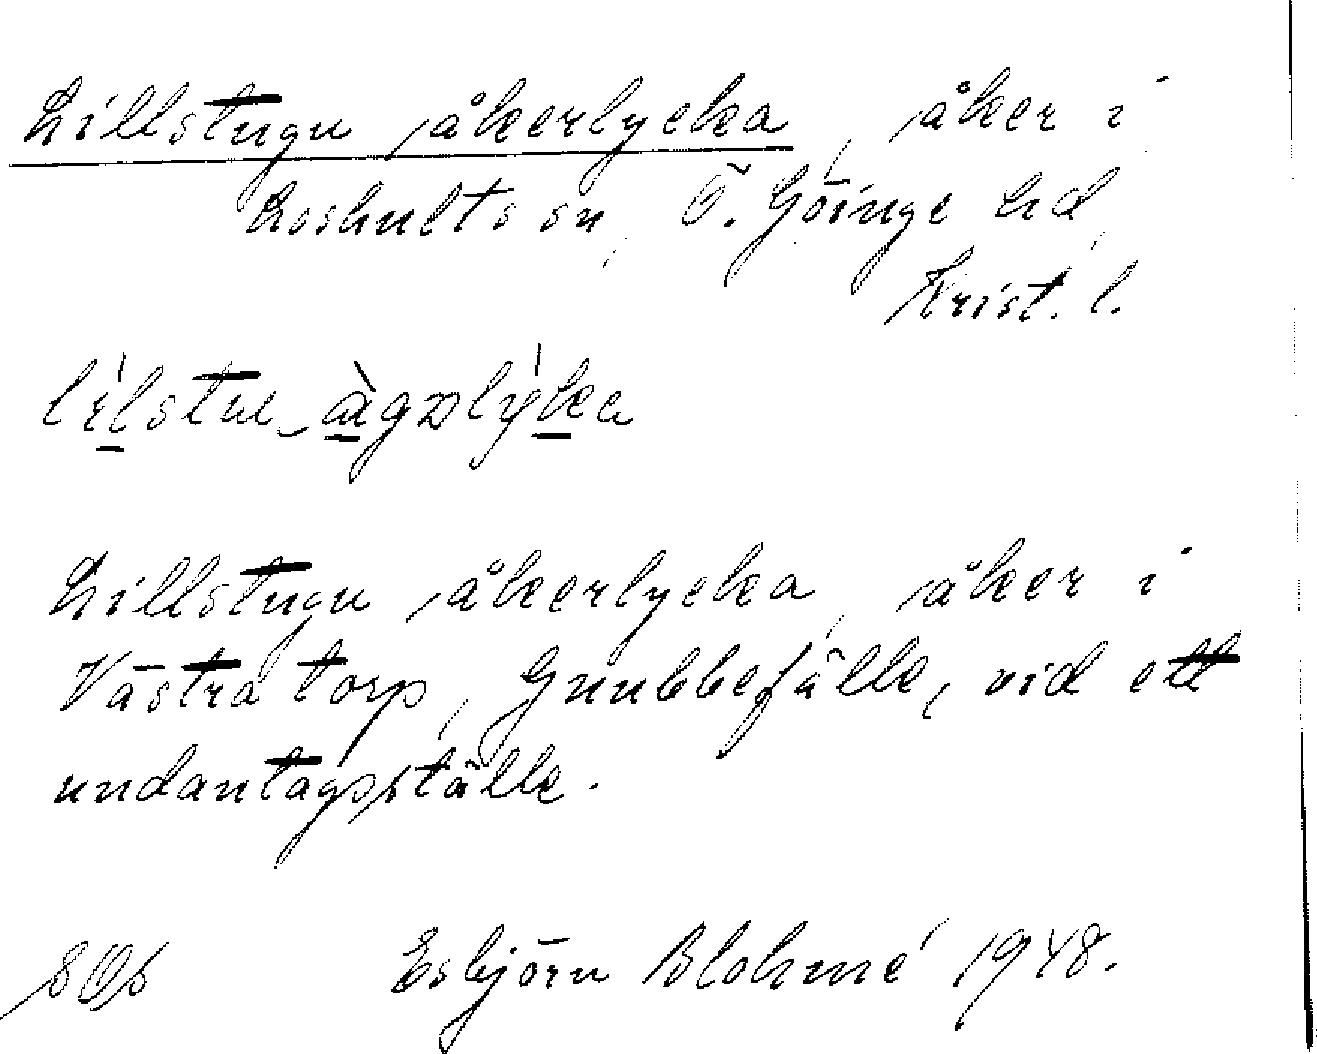 Lillstugu åkerlycka, åker i
Loshults sn, Ö. Göinge hd,
Krist. l.
Lillstugu åkerlycka, åker i
Västra torp, Gnubbefälle, vid ett
undantagsställe.
Esbjörn Blohmé 1948.